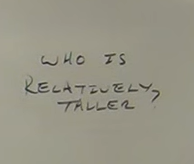 WHO IS
RELATIVELY
TALLER?